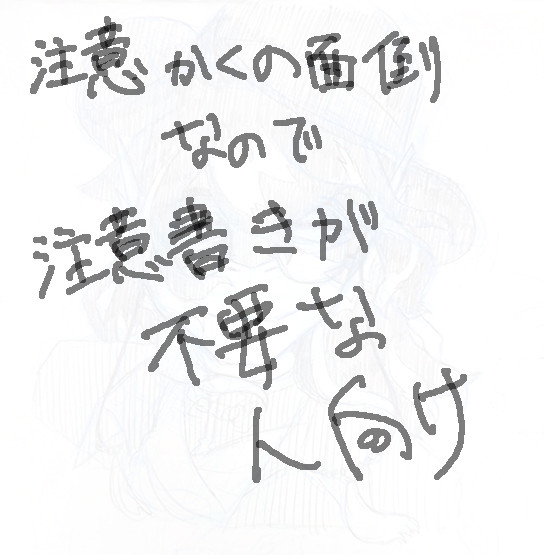 注意かくの面倒
なので
注意書きが
不要な
人向け